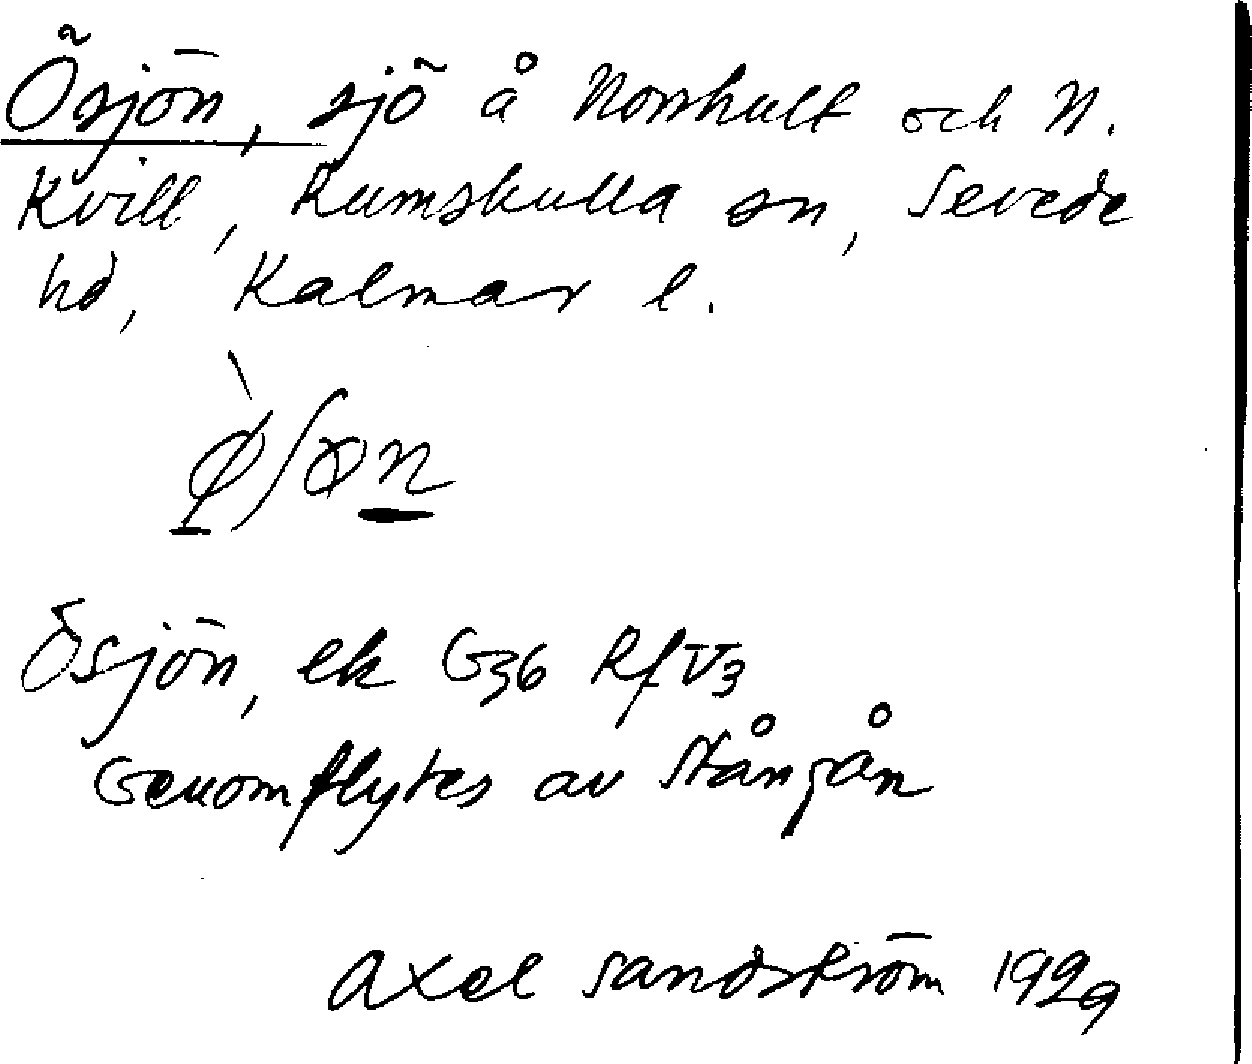 Ösjön, sjö å Norrhult och N.
Kvill, Rumskulla sn, Sevede
hd, Kalmar l.
Ösjön, ek G36 Rf V3
Genomflytes av Stångån
Axel Sandström 1929